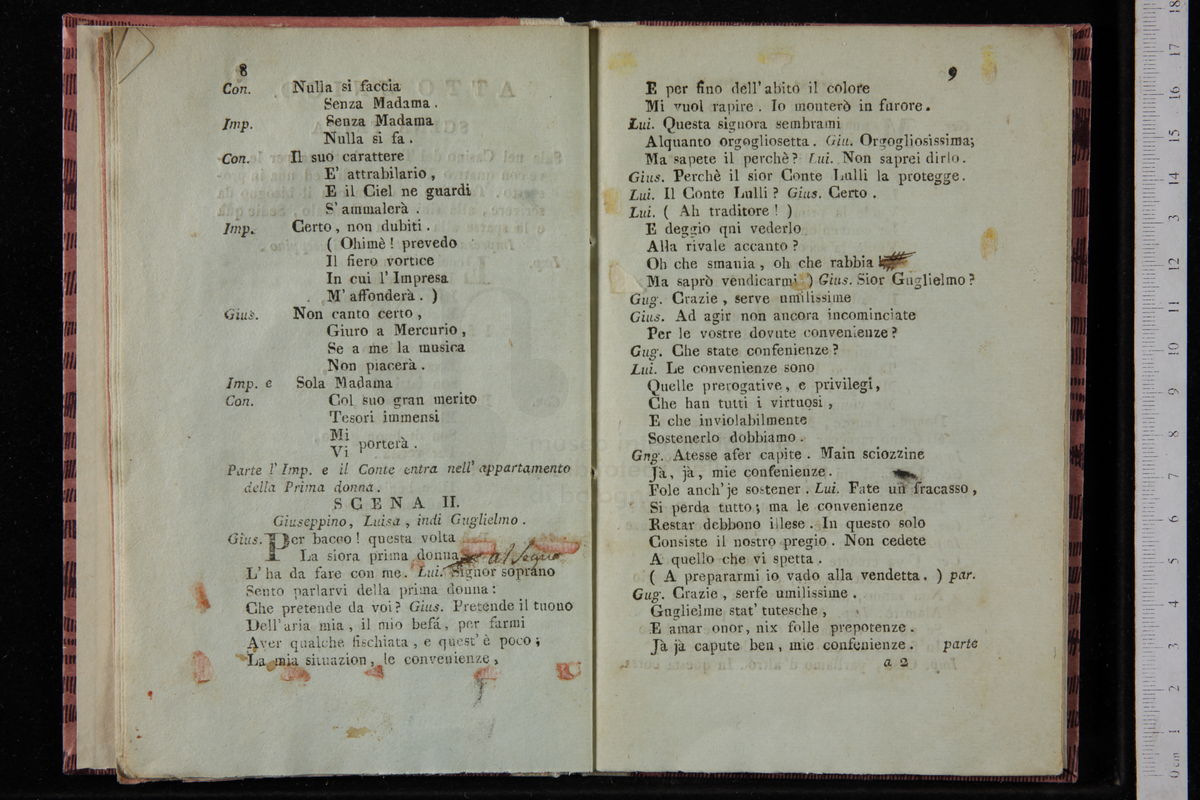 8
Con. Nulla si faccia
Senza Madama .
Imp. Senza Madama
Nulla si fa .
Con. Il suo carattere
E' attrabilario ,
E il Ciel ne guardi
S' ammalerà .
Imp. Certo , non dubiti .
( Ohimè ! prevedo
Il fiero vortice
In cui l' Impresa
M' affonderà . )
Gius. Non canto certo ,
Giuro a Mercurio ,
Se a me la musica
Non piacerà .
Imp. e Sola Madama
Con. Col suo gran merito
Tesori immensi
Mi
Vi porterà .
Parte l' Imp. e il Conte entra nell' appartamento
della Prima donna.
SCENA II.
Giuseppino, Luisa , indi Guglielmo .
Gius. Per bacco ! questa volta
La siora prima donna al Segno
L' ha da fare con me. Lui. Signor soprano
Sento parlarvi della prima donna :
Che pretende da voi? Gius. Pretende il tuono
Dell' aria mia , il mio befà, per farmi
Aver qualche fischiata , e quest' è poco ;
La mia situazion , le convenienze ,
9
E per fino dell' abito il colore
Mi vuol rapire . Io monterò in furore.
Lui. Questa signora sembrami
Alquanto orgogliosetta . Giu. Orgogliosissima;
Ma sapete il perchè ? Lui. Non saprei dirlo.
Gius. Perchè il sior Conte Lulli la protegge.
Lui. Il Conte Lulli ? Gius. Certo .
Lui. ( Ah traditore ! )
E deggio qni vederlo
Alla rivale accanto ?
Oh che smania , oh che rabbia !
Ma saprò vendicarmi ) Gius. Sior Guglielmo ?
Gug. Crazie , serve umilissime
Gius. Ad agir non ancora incominciate
Per le vostre dovute convenienze ?
Gug. Che state confenienze ?
Lui. Le convenienze sono
Quelle prerogative , e privilegi ,
Che han tutti i virtuosi ,
E che inviolabilmente
Sostenerlo dobbiamo .
Gng. Atesse afer capite . Main sciozzine
Jà, jà , mie confenienze .
Fole anch' je sostener . Lui. Fate un fracasso ,
Si perda tutto ; ma le convenienze
Restar debbono illese . In questo solo
Consiste il nostro pregio . Non cedete
A quello che vi spetta .
( A prepararmi io vado alla vendetta. ) par.
Gug. Crazie , serfe umilissime .
Guglielme stat' tutesche ,
E amar onor, nix folle prepotenze .
Jà jà capute ben , mie confenienze . parte
a 2